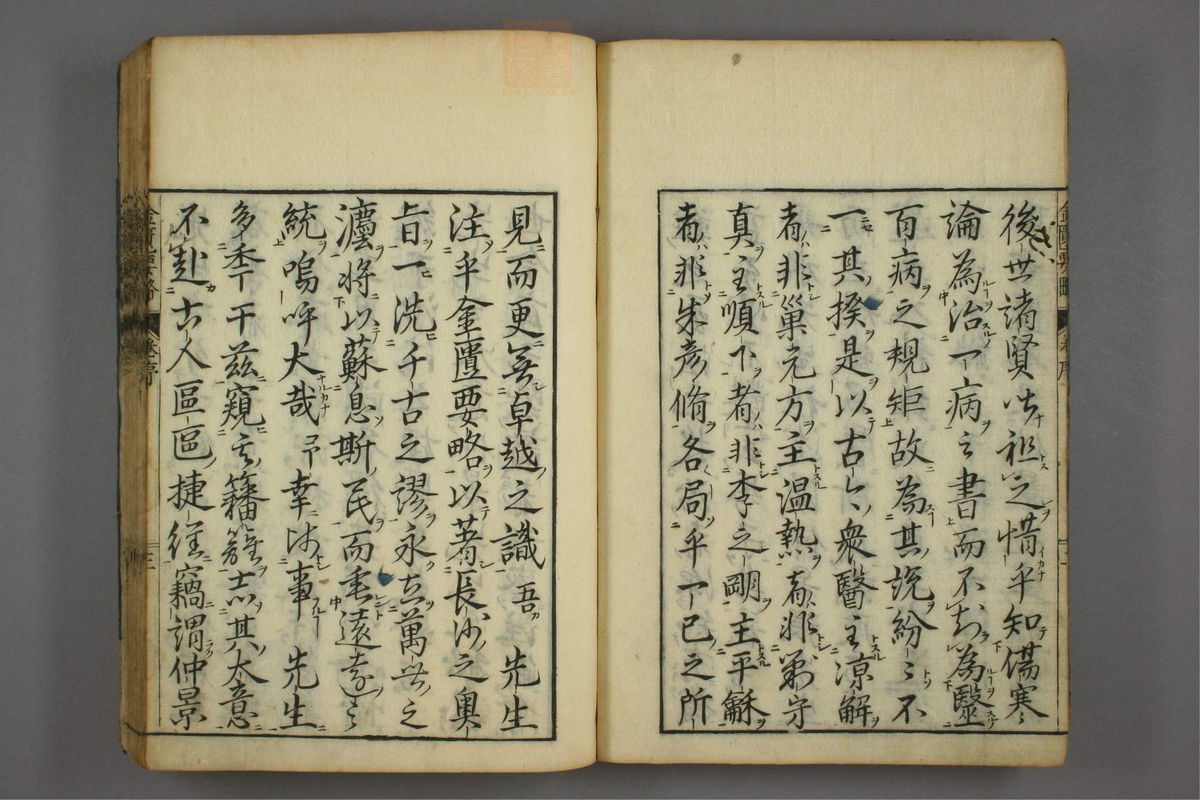 後世諸賢皆祖之惜乎知傷寒
論為治一病之書而不知為醫
百病之規矩故為其説紛〻不
一其揆是以古今衆醫主凉解
者非巢元方主温熱者非劉守
真主順下者非李之剛主平龢
者非朱彦脩各局乎一已之所
見而更無卓越之識吾先生
注乎金匱要略以著長沙之奥
旨一洗千古之謬永立萬世之
灋將以蘇息斯民而垂遠﻿之
統嗚呼大哉予幸師事先生
多季于茲窺其籓籬志其大意
不赴古人區區捷徑竊謂仲景